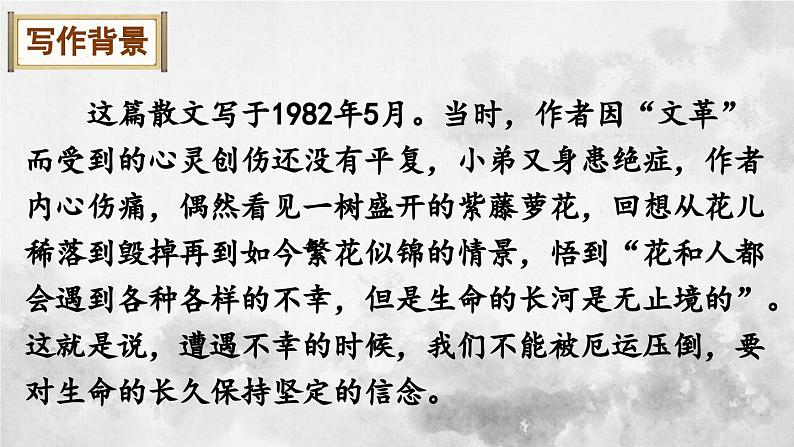 写作背景
这篇散文写于1982年5月。当时，作者因“文革”
而受到的心灵创伤还没有平复，小弟又身患绝症，作者
内心伤痛，偶然看见一树盛开的紫藤萝花，回想从花儿
稀落到毁掉再到如今繁花似锦的情景，悟到“花和人都
会遇到各种各样的不幸，但是生命的长河是无止境的”。
这就是说，遭遇不幸的时候，我们不能被厄运压倒，要
对生命的长久保持坚定的信念。